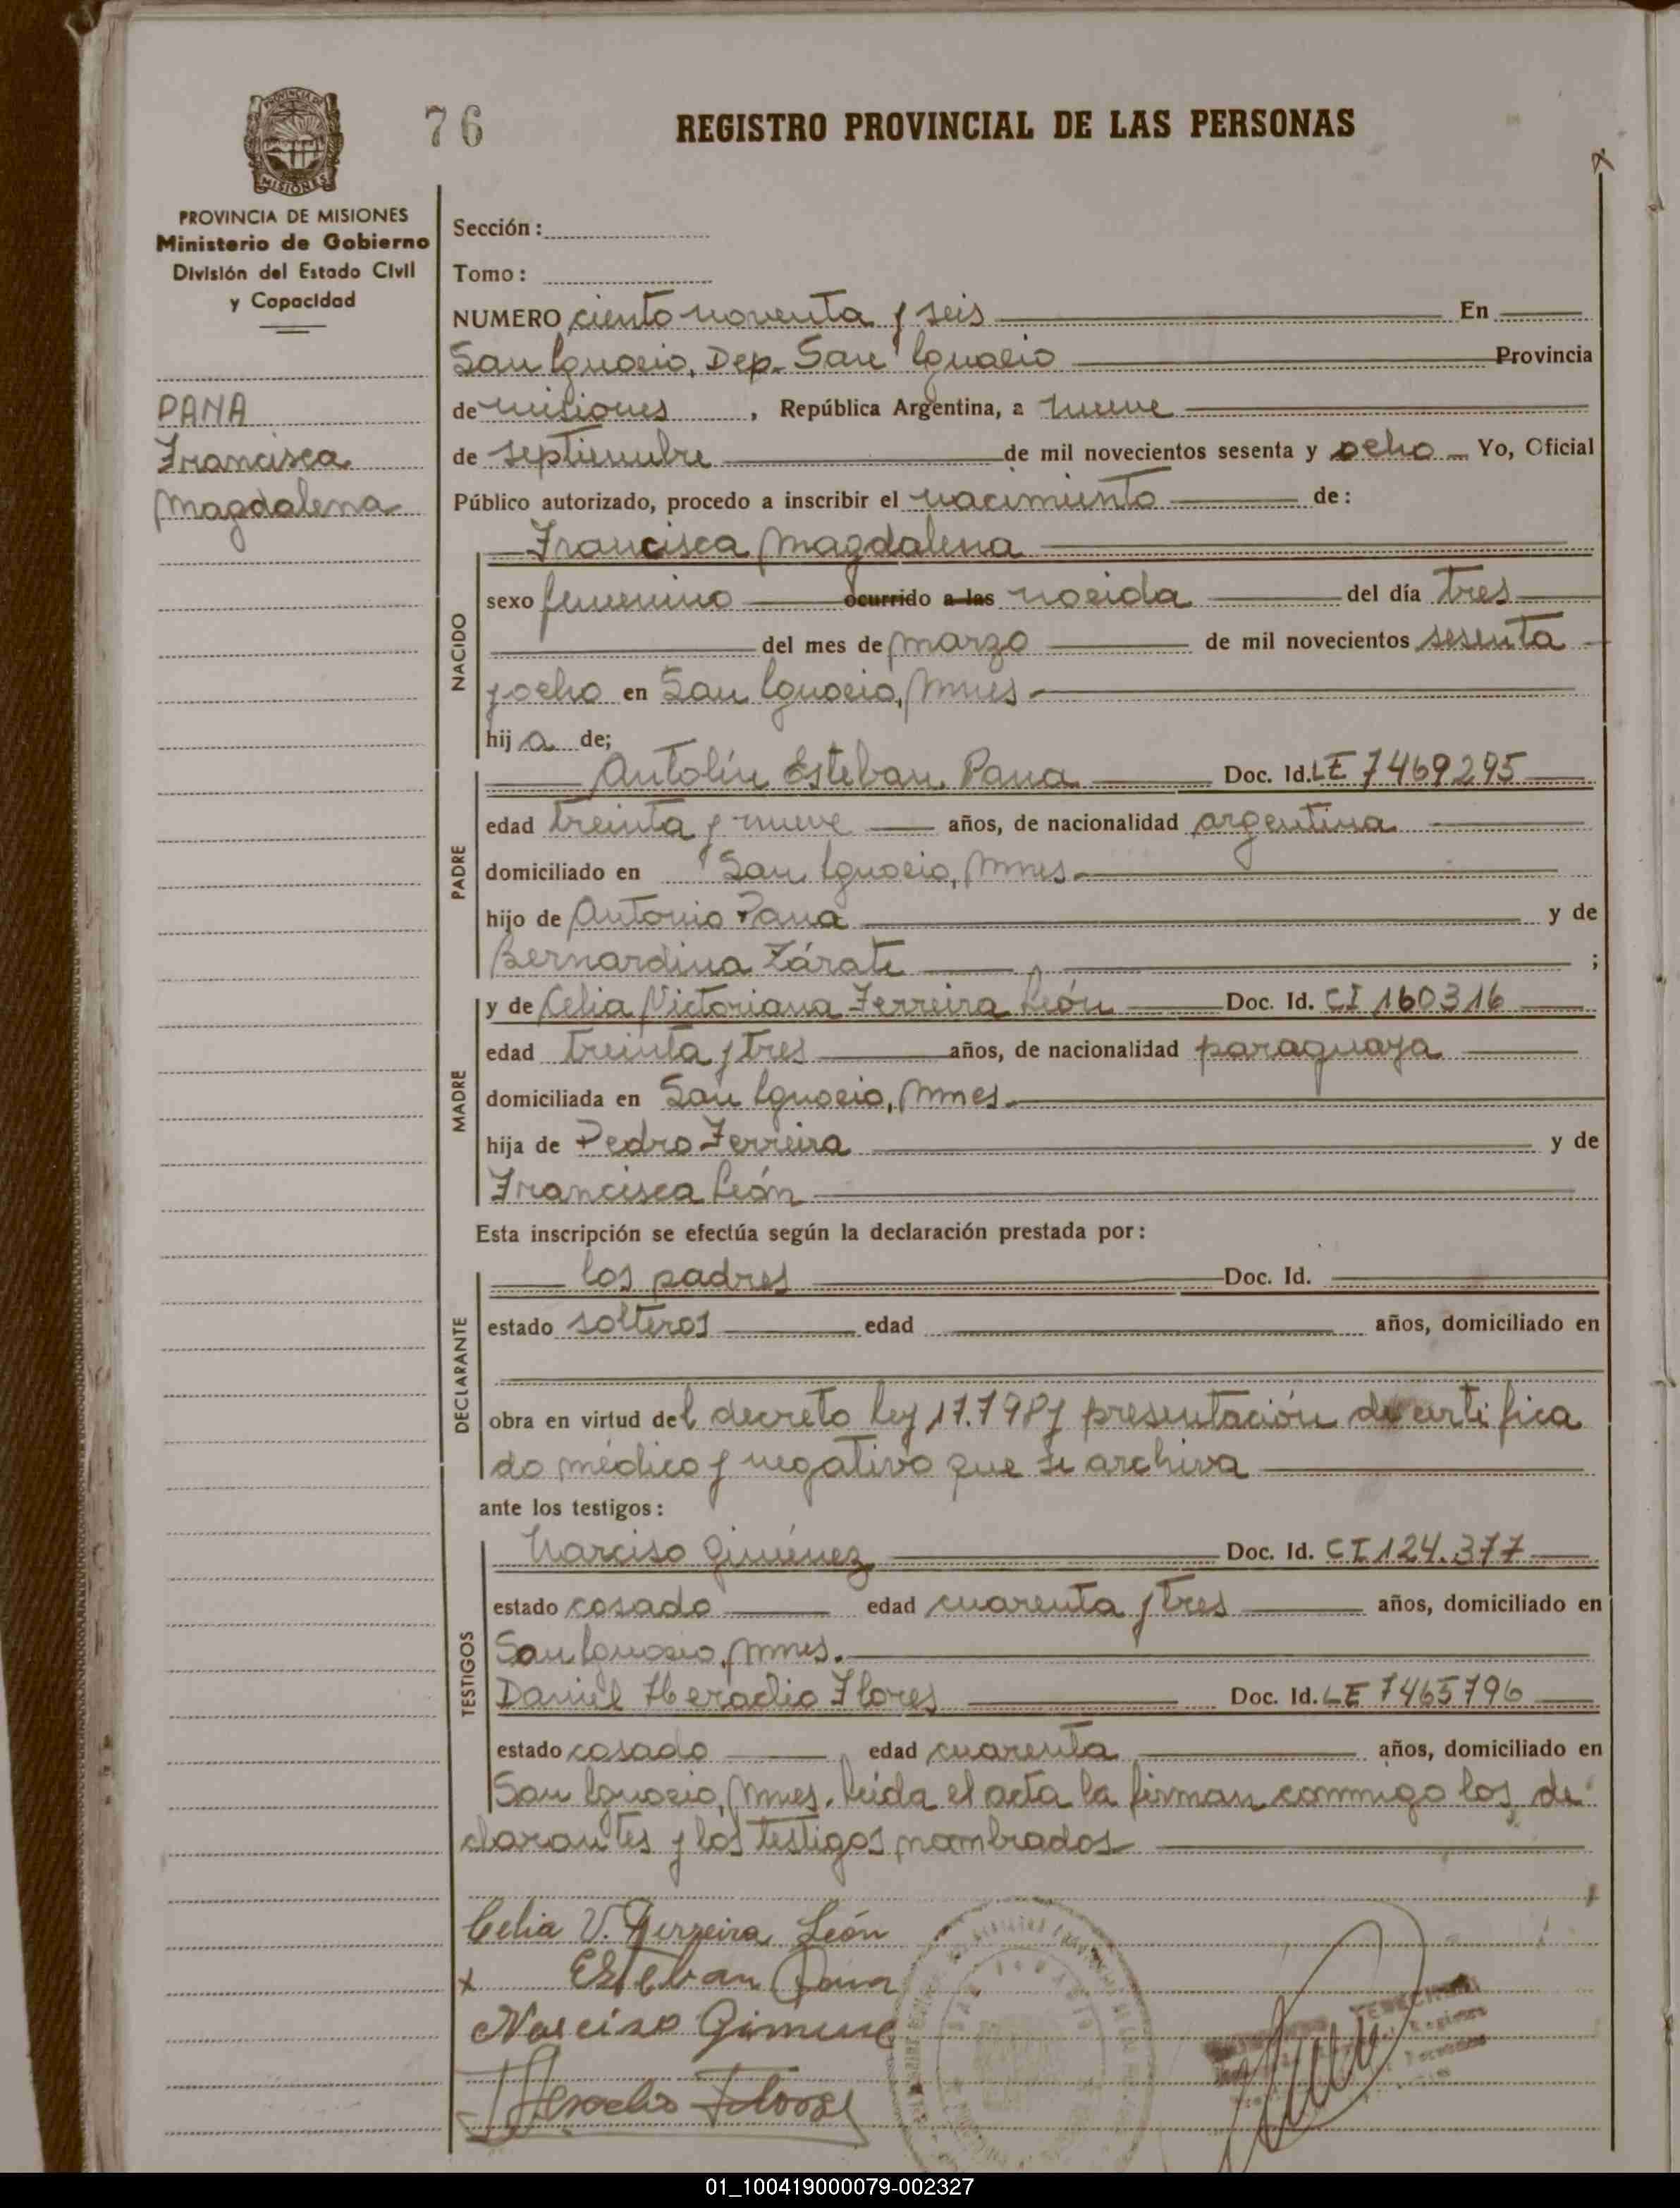 76
REGISTRO PROVINCIAL DE LAS PERSONAS
PROVINCIA DE
MISIONES
PROVINCIA DE MISIONES
Ministerio de Gobierno
División del Estado Civil
y Capacidad
PANA
Francisca
Magdalena
Sección:
Tomo:
NUMERO ciento noventa y seis En
San Ignacio, Dep. San Ignacio Provincia
de Misiones, República Argentina, a nueve
de septiembre de mil novecientos sesenta y ocho Yo, Oficial
Público autorizado, procedo a inscribir el nacimiento de:
NACIDO
Francisca Magdalena
sexo femenino ocurrido a las nacida del día tres
del mes de marzo de mil novecientos sesenta
y ocho en San Ignacio, Mnes
hija de;
PADRE
Antolín Esteban Pana Doc. Id. LE 7469295
edad treinta y nueve años, de nacionalidad argentina
domiciliado en San Ignacio, Mnes.
hijo de Antonio Pana y de
Bernardina Zárate ;
MADRE
y de Celia Victoriana Ferreira León Doc. Id. CI 160316
edad treinta y tres años, de nacionalidad paraguaya
domiciliada en San Ignacio, Mnes.
hija de Pedro Ferreira y de
Francisca León
Esta inscripción se efectúa según la declaración prestada por:
DECLARANTE
los padres Doc. Id.
estado solteros edad años, domiciliado en
obra en virtud del decreto ley 17.798 y presentación de certifica
do médico y negativo que se archiva
ante los testigos:
TESTIGOS
Narciso Giménez Doc. Id. CI 124.377
estado casado edad cuarenta y tres años, domiciliado en
San Ignacio, Mnes.
Daniel Heraclio Flores Doc. Id. LE 7465796
estado casado edad cuarenta años, domiciliado en
San Ignacio, Mnes. Leída el acta la firman conmigo los de
clarantes y los testigos nombrados
Celia V. Ferreira León
x Esteban Pana
Narciso Gimene
Heraclio Flores
01_100419000079-002327